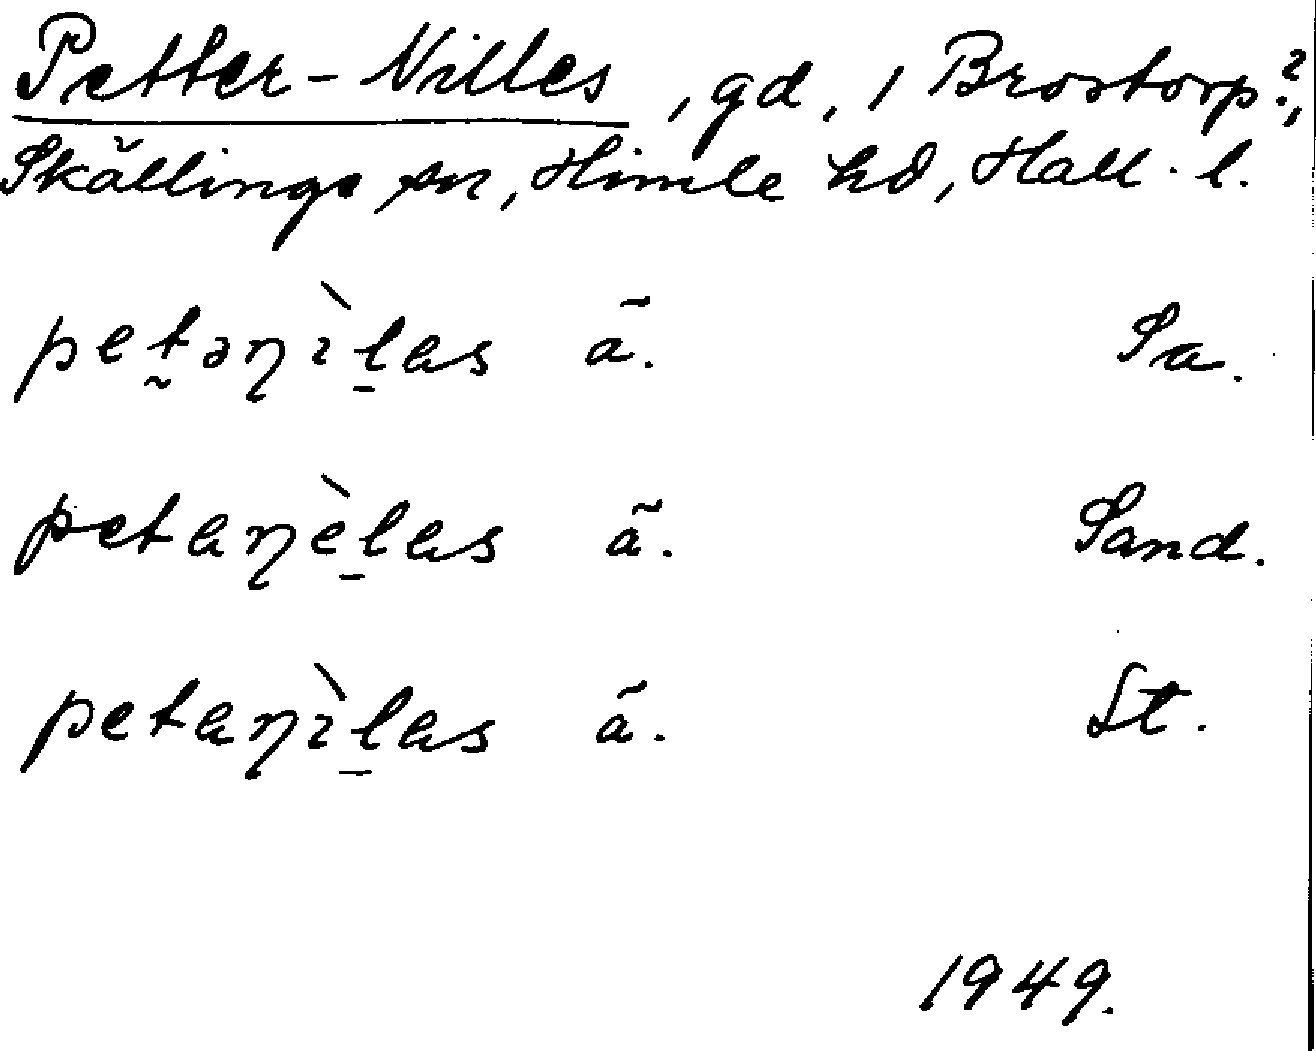 Petter-Nilles, gd, 1 Brostorp?,
Skällinge sn, Himle hd, Hall. l.
pet̰əɳìl̲as ã. Sa.
petaɳèl̲as ã. Sand.
petaɳìl̲as ã. St.
1949.